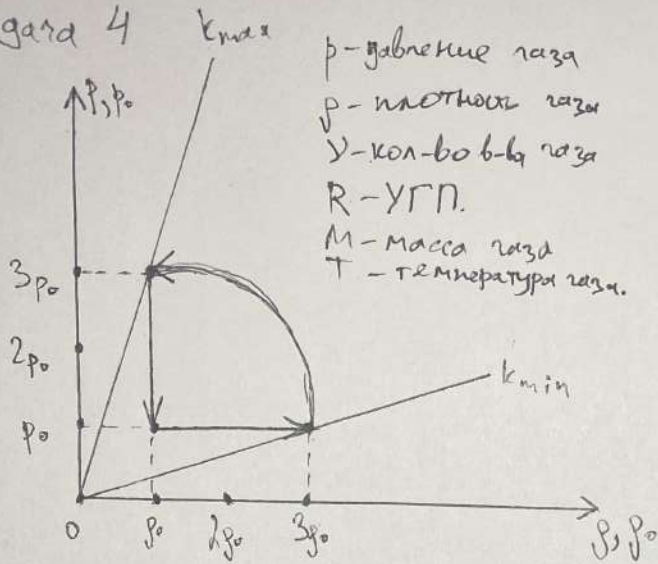 дача 4
k max
p, p₀
p - давление газа
ρ - плотность газа
ν - кол-во в-ва газа
R - УГП.
M - масса газа
T - температура газа.
3p₀
2p₀
p₀
k min
0
ρ₀
2ρ₀
3ρ₀
ρ, ρ₀